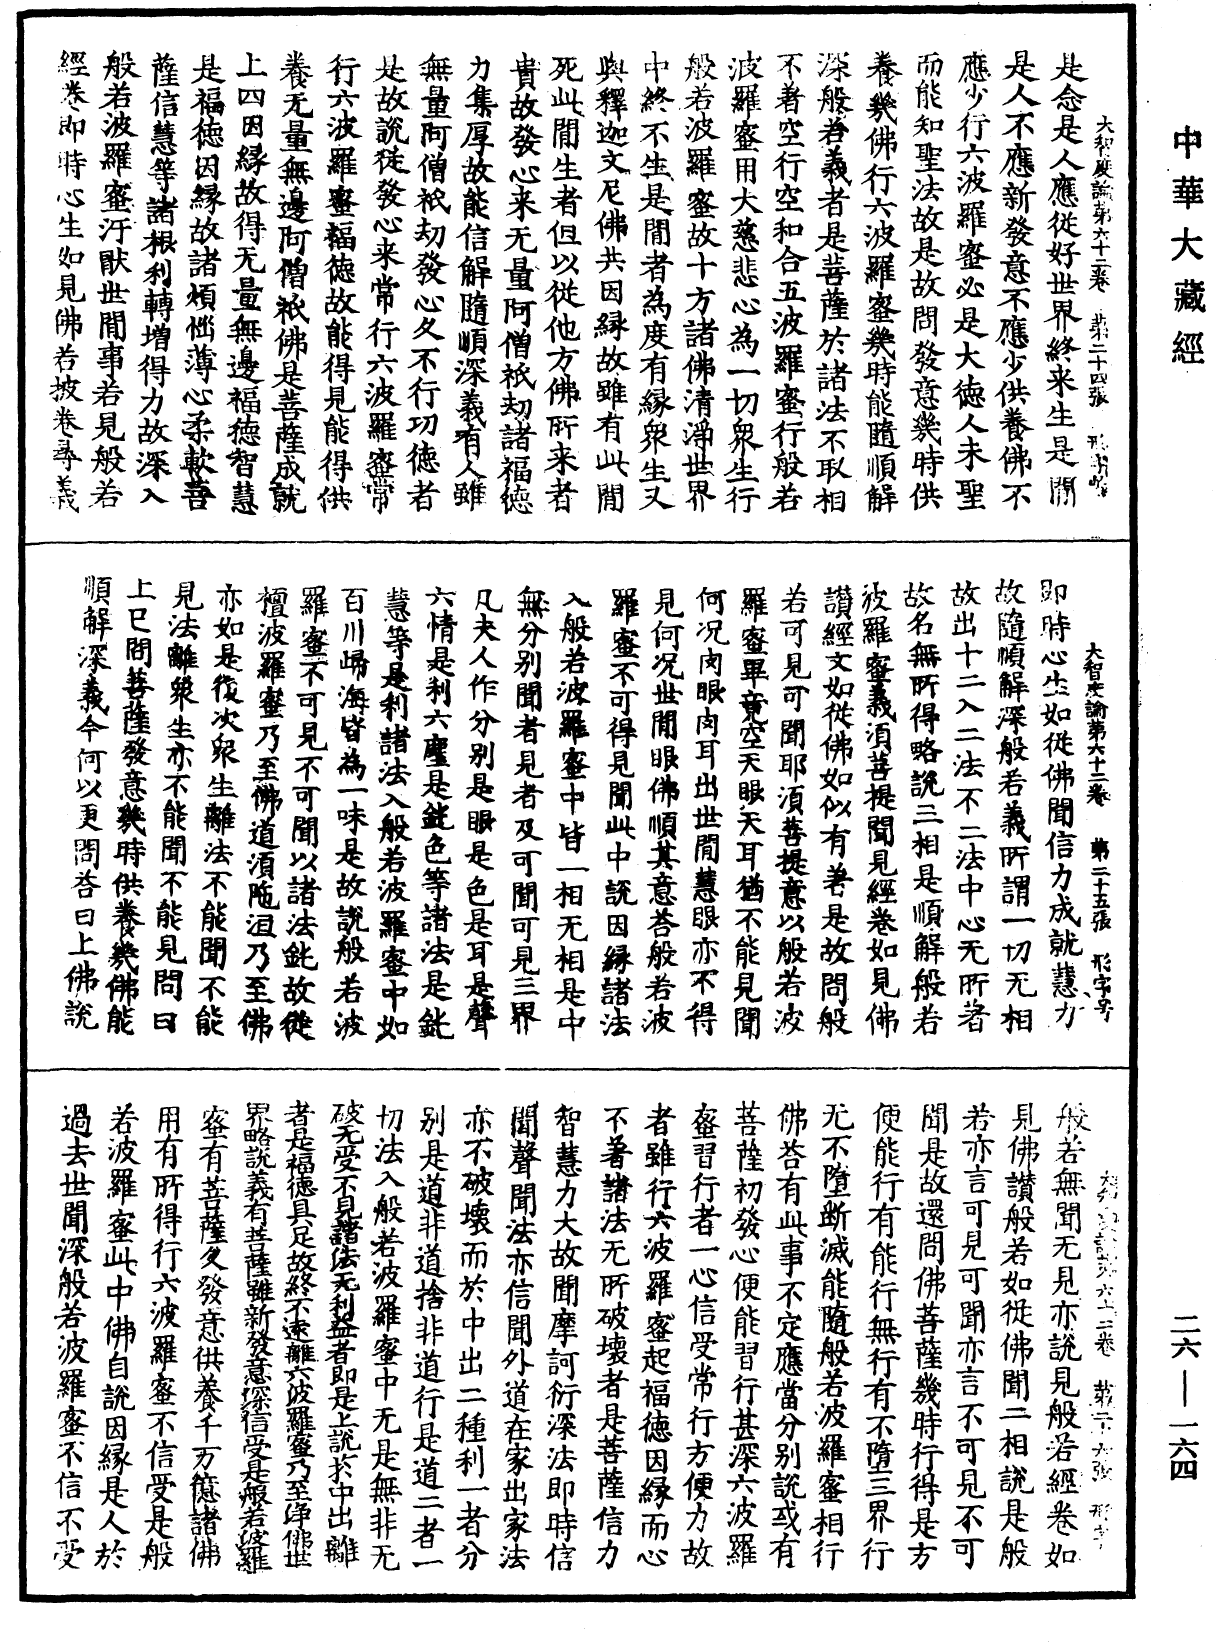 中華大藏經
二六—一六四
大智度論第六十二卷　第二十四張　形字号
是念是人應從好世界終来生是間
是人不應新發意不應少供養佛不
應少行六波羅蜜必是大德人未聖
而能知聖法故是故問發意幾時供
養幾佛行六波羅蜜幾時能隨順解
深般若義者是菩薩於諸法不取相
不著空行空和合五波羅蜜行般若
波羅蜜用大慈悲心為一切衆生行
般若波羅蜜故十方諸佛清淨世界
中終不生是間者為度有緣衆生又
與釋迦文尼佛共因緣故雖有此間
死此間生者但以從他方佛所来者
貴故發心来无量阿僧祇劫諸福德
力集厚故能信解隨順深義有人雖
無量阿僧祇劫發心久不行功德者
是故說從發心来常行六波羅蜜常
行六波羅蜜福德故能得見能得供
養无量無邊阿僧祇佛是菩薩成就
上四因緣故得无量無邊福德智慧
是福德因緣故諸煩惱薄心柔軟菩
薩信慧等諸根利轉增得力故深入
般若波羅蜜汙猒世間事若見般若
經卷即時心生如見佛若披卷尋義
大智度論第六十二卷　第二十五張　形字号
即時心生如從佛聞信力成就慧力
故隨順解深般若義所謂一切无相
故出十二入二法不二法中心无所著
故名無所得略說三相是順解般若
波羅蜜義須菩提聞見經卷如見佛
讚經文如從佛如似有著是故問般
若可見可聞耶須菩提意以般若波
羅蜜畢竟空天眼天耳猶不能見聞
何况肉眼肉耳出世間慧眼亦不得
見何况世間眼佛順其意荅般若波
羅蜜不可得見聞此中說因緣諸法
入般若波羅蜜中皆一相无相是中
無分别聞者見者及可聞可見三界
凡夫人作分别是眼是色是耳是聲
六情是利六塵是鈍色等諸法是鈍
慧等是利諸法入般若波羅蜜中如
百川歸海皆為一味是故說般若波
羅蜜不可見不可聞以諸法鈍故從
檀波羅蜜乃至佛道須陁洹乃至佛
亦如是復次衆生離法不能聞不能
見法離衆生亦不能聞不能見問曰
上已問菩薩發意幾時供養幾佛能
順解深義今何以更問荅曰上佛說
般若無聞无見亦說見般若經卷如
見佛讚般若如從佛聞二相說是般
若亦言可見可聞亦言不可見不可
聞是故還問佛菩薩幾時行得是方
便能行有能行無行有不墮三界行
无不墮斷滅能隨般若波羅蜜相行
佛荅有此事不定應當分别說或有
菩薩初發心便能習行甚深六波羅
蜜習行者一心信受常行方便力故
者雖行六波羅蜜起福德因緣而心
不著諸法无所破壞者是菩薩信力
智慧力大故聞摩訶衍深法即時信
聞聲聞法亦信聞外道在家出家法
亦不破壞而於中出二種利一者分
别是道非道捨非道行是道二者一
切法入般若波羅蜜中无是無非无
破无受不見諸法无利益者即是上說於中出離
者是福德具足故終不遠離六波羅蜜乃至淨佛世
界略說義有菩薩雖新發意深信受是般若波羅
蜜有菩薩久發意供養千万億諸佛
用有所得行六波羅蜜不信受是般
若波羅蜜此中佛自說因緣是人於
過去世聞深般若波羅蜜不信不受